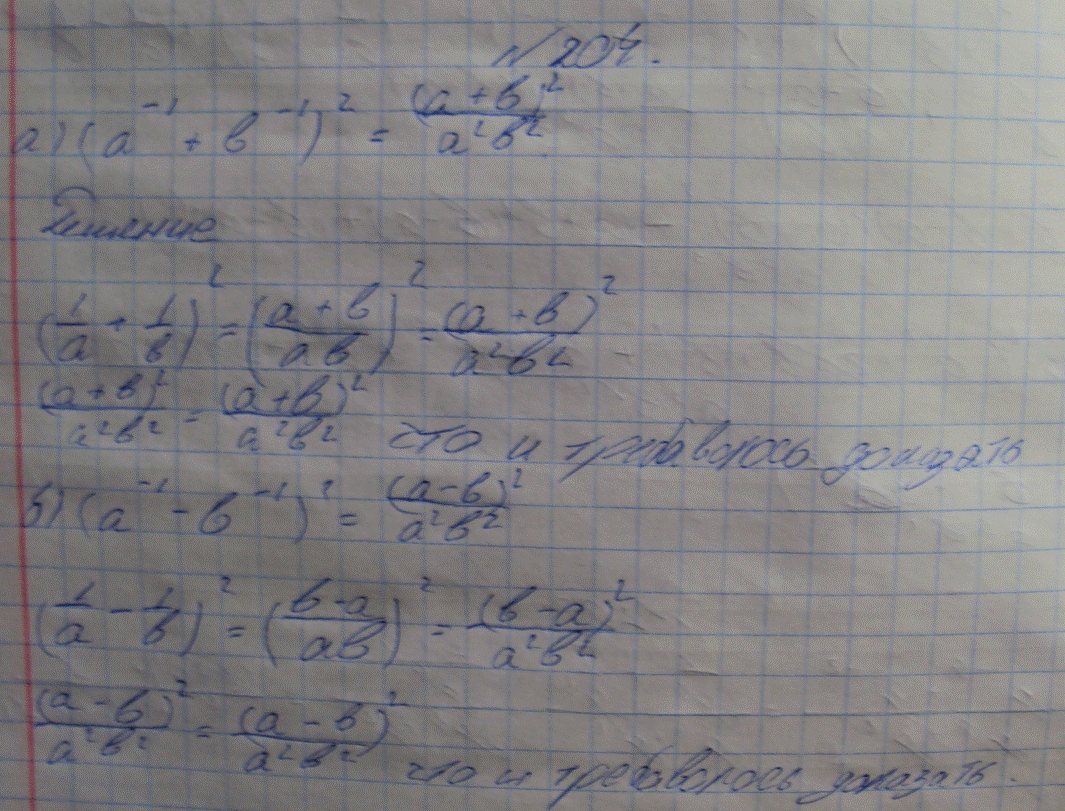 №204.
а) (a⁻¹ + b⁻¹)² = (a+b)²/a²b²
Решение
(1/a + 1/b)² = ((a+b)/ab)² = (a+b)²/a²b²
(a+b)²/a²b² = (a+b)²/a²b² что и требаволось доказать
б) (a⁻¹ - b⁻¹)² = (a-b)²/a²b²
(1/a - 1/b)² = ((b-a)/ab)² = (b-a)²/a²b²
(a-b)²/a²b² = (a-b)²/a²b² что и требаволось доказать.